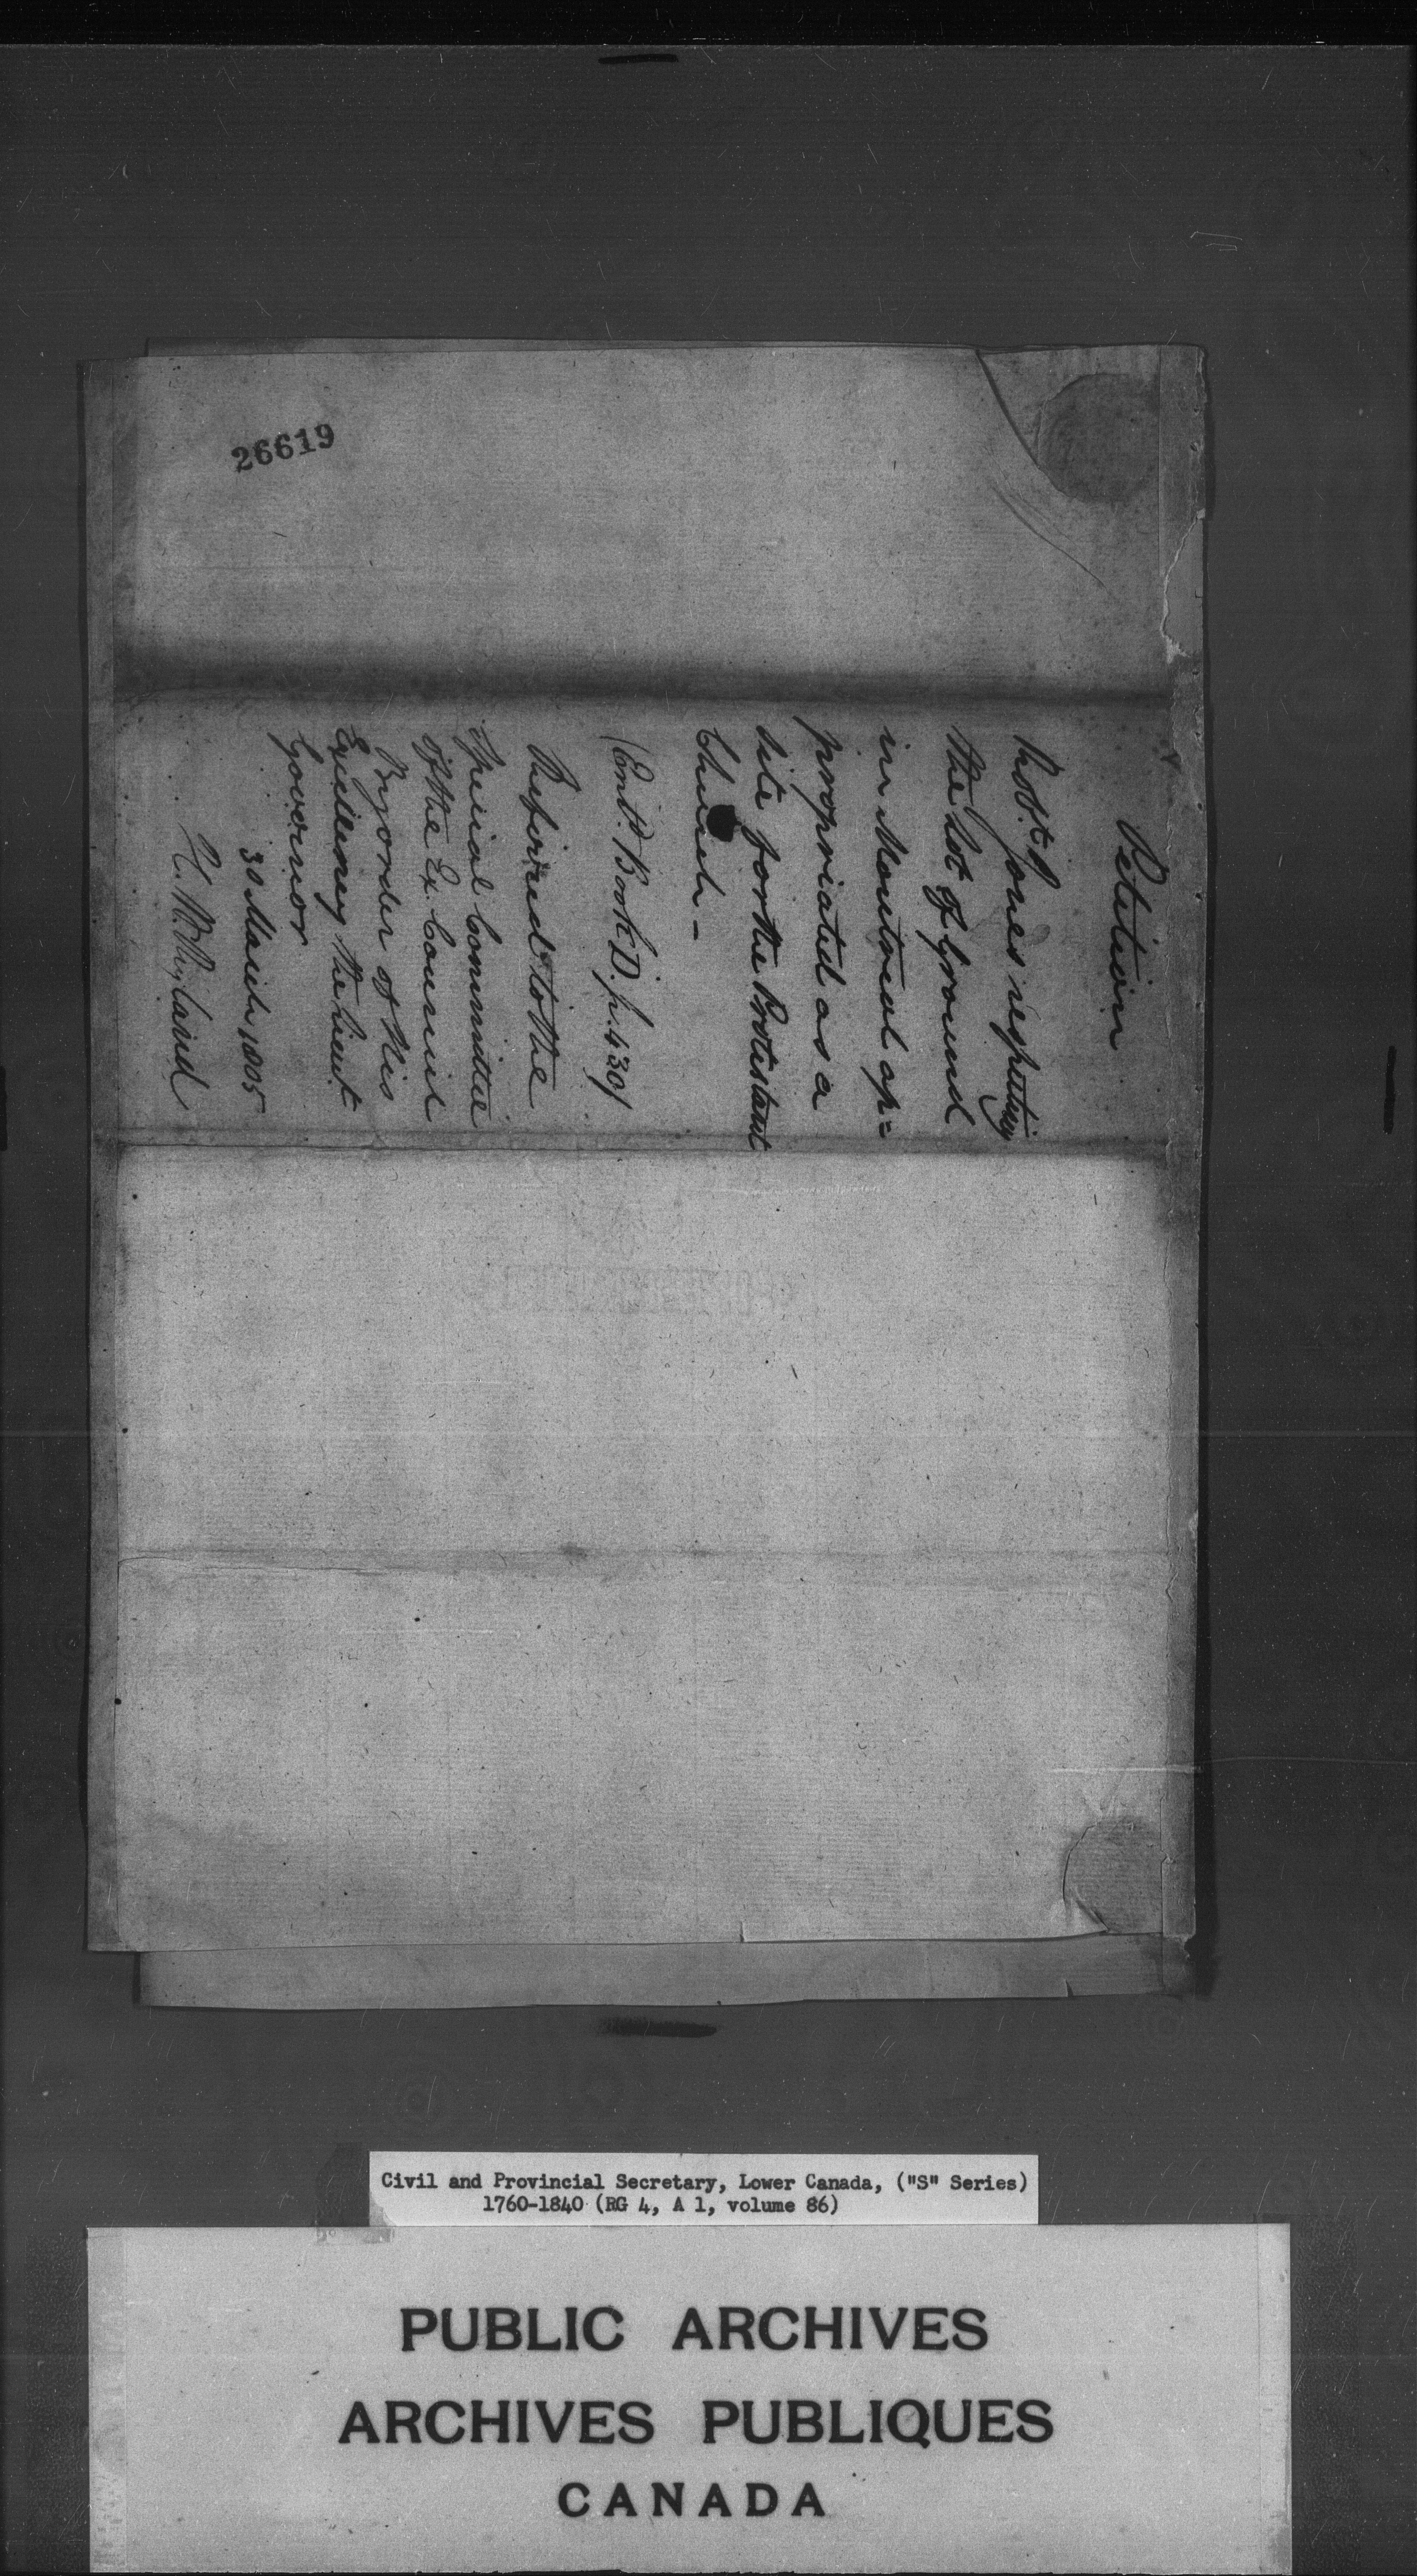 26619
Petition
Robt. Jones respecting
the Lot of Ground
in Montreal ap=
propriated as a
site for the Protestant
Church -
(Entd. Book D. p. 430)
Referred to the
Special Committee
of the Ex. Council
By order of His
Excellency the Lieut
Governor
30 March 1805
H. W. Ryland
Civil and Provincial Secretary, Lower Canada, ("S" Series)
1760-1840 (RG 4, A 1, volume 86)
PUBLIC ARCHIVES
ARCHIVES PUBLIQUES
CANADA